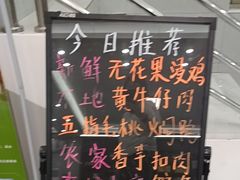 今日推荐
新鲜无花果煲鸡
本地黄牛仔肉
五指毛桃
农家香芋扣肉